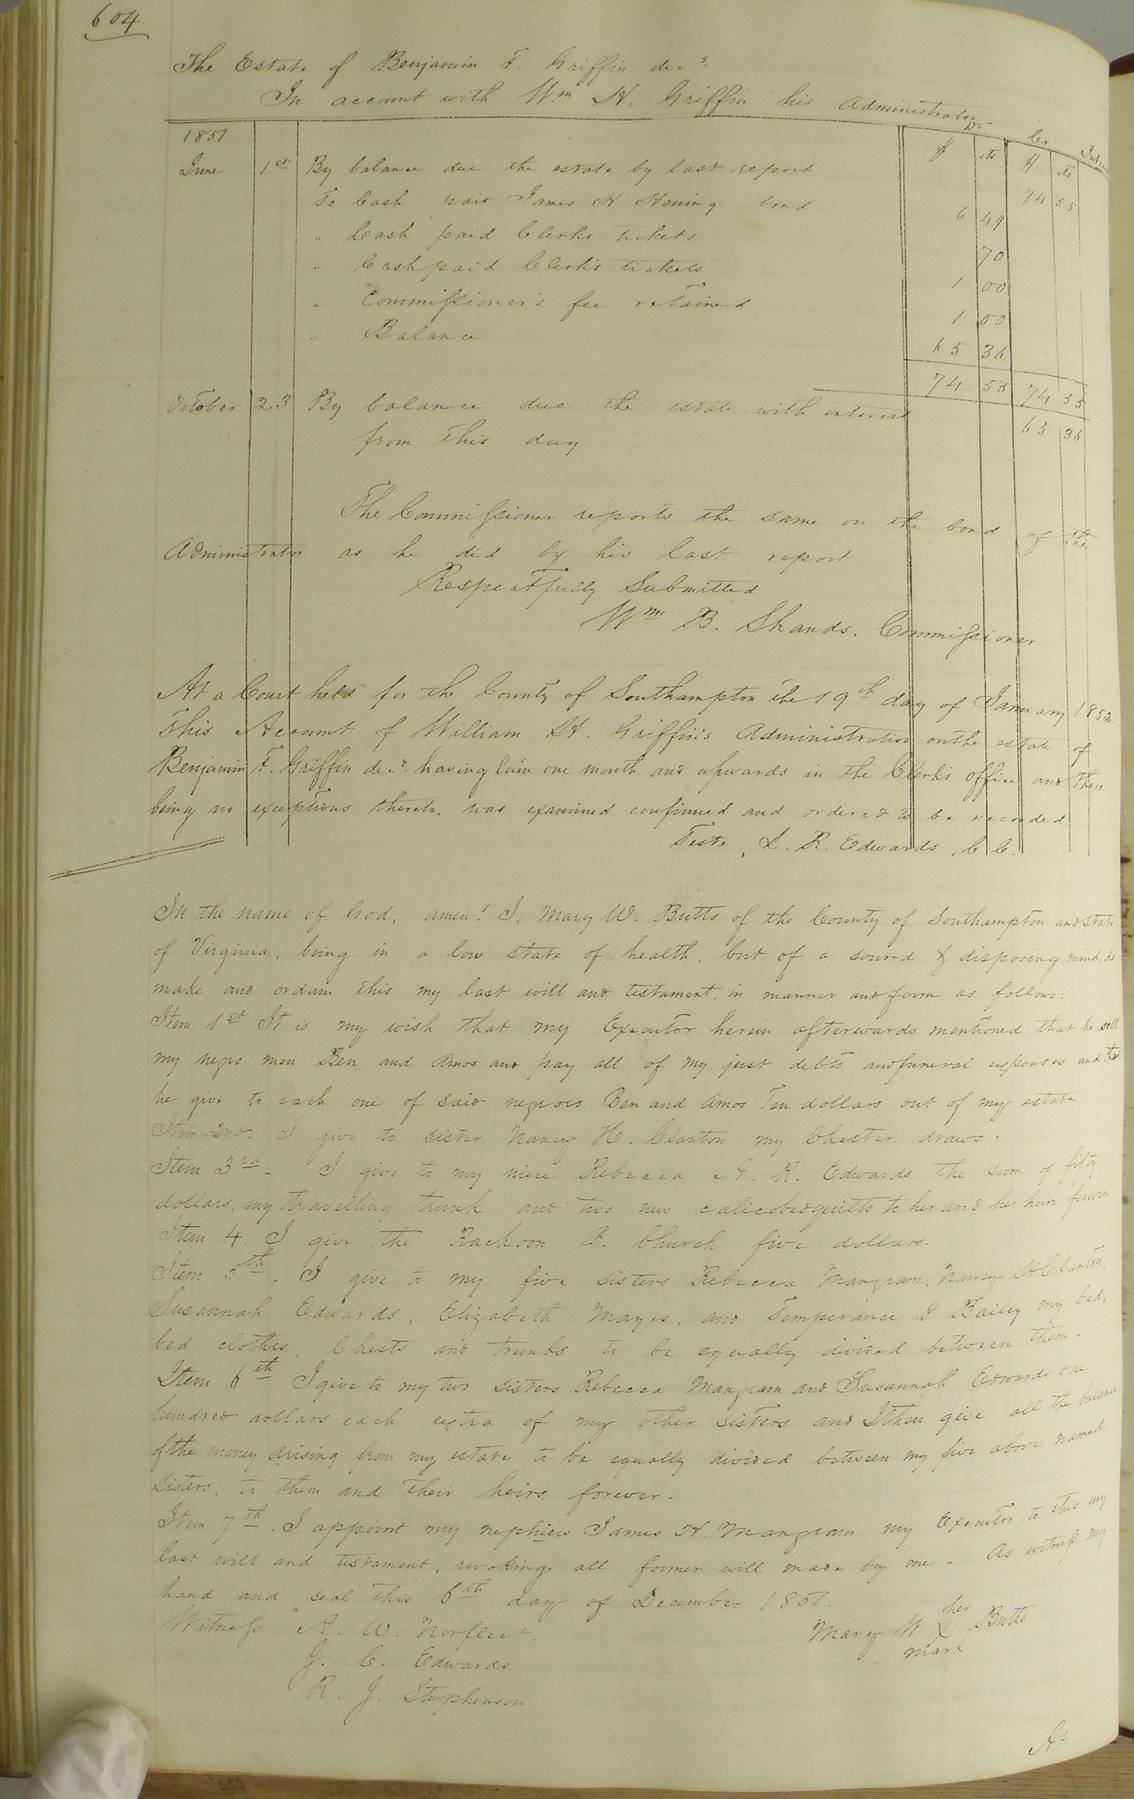 604
The Estate of Benjamin F. Griffin decd
In account with Wm H. Griffin his Administrator
Dr Cr
1851 $ cts $ cts
June 1st By balance due the estate by last report 74 55
To Cash paid James H bond 6 49
" Cash paid Clerks tickets 70
" Cash paid Clerk's tickets 1 00
" Commissioner's fee retained 1 00
" Balance 65 36
74 55 74 55
October 23 By balance due the estate with interest 65 36
from this day
The Commissioner reports the same on the bond of the
Administrator as he did by his last report
Respectfully Submitted
Wm B. Shands. Commissioner
At a Court held for the County of Southampton the 19th day of January 1852
This Account of William H. Griffin's Administration on the estate of
Benjamin F. Griffin decd. having lain one month and upwards in the Clerk's office and there
being no exceptions thereto, was examined confirmed and ordered to be recorded
Teste, L. R. Edwards, C C.
In the name of God, amen! I, Mary W. Butts of the County of Southampton and state
of Virginia, being in a low state of health, but of a sound & disposing mind, do
make and ordain this my last will and testament, in manner and form as follows:
Item 1st It is my wish that my Executor herein afterwards mentioned that he sell
my negro men Ben and Amos and pay all of my just debts and funeral expenses and that
he give to each one of said negroes Ben and Amos Ten dollars out of my estate
Item 2nd. I give to sister Nancy H. Clanton my Chester draws.
Item 3rd - I give to my niece Rebecca A. R. Edwards the sum of fifty
dollars, my travelling trunk and two new calicobedquilts to her and her heirs forever
Item 4. I give the Rackoon S. Church five dollars.
Item 5th - I give to my five sisters Rebecca Mangram, Nancy H Clanton,
Susannah Edwards, Elizabeth Mayes, and Temperance Bailey my bed,
bed clothes, Chests and trunks to be equally divided between them.
Item 6th I give to my two sisters Rebecca Mangram and Susannah Edwards one
hundred dollars each extra of my other sisters and I then give all the balance
of the money arising from my estate to be equally divided between my five above named
sisters, to them and their heirs forever.
Item 7th. I appoint my nephiew James H. Mangram my Executor to this my
last will and testament, revoking all former will made by me - As witness my
hand and seal this 6th day of December 1851.
Witness A. W. Norfleet. Mary W her X mark Butts
J. C. Edwards
R. J. Stephenson
At